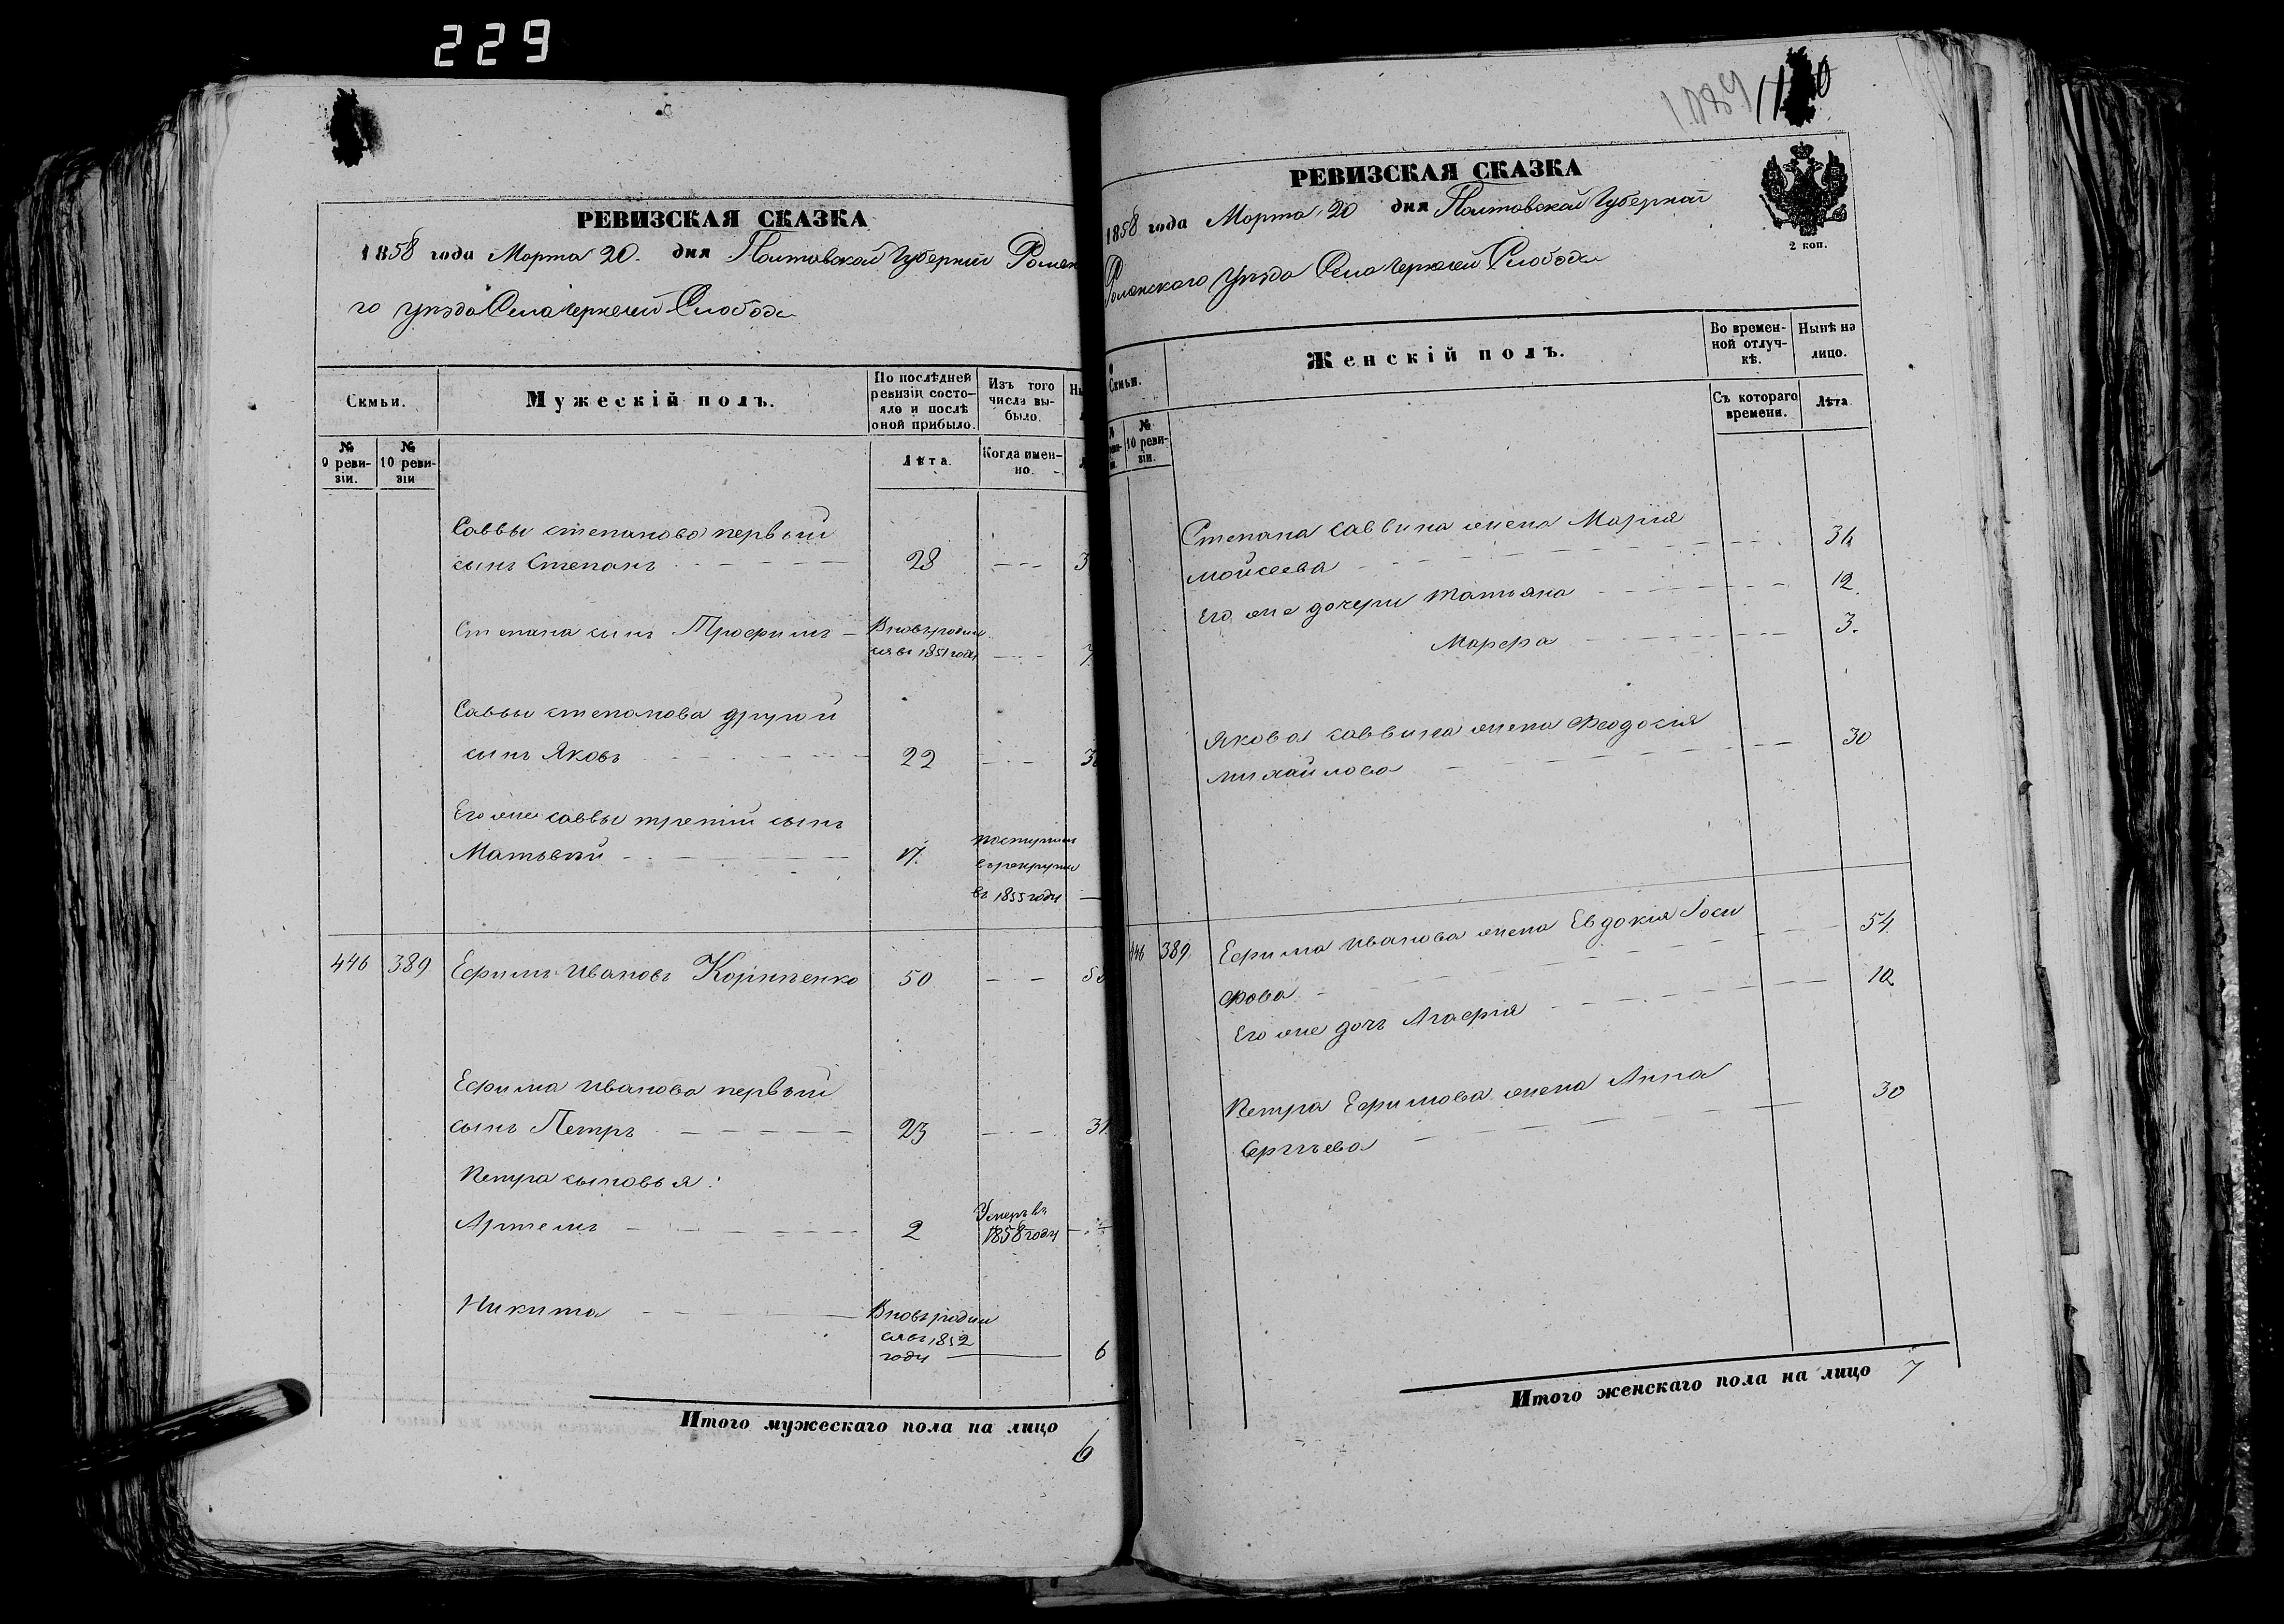 229
РЕВИЗСКАЯ СКАЗКА
1858 года Марта 20. дня Полтавской Губерніи Ромен
го уезда Села Чернечей Слободы
Семьи.
Мужескій полъ.
По послѣдней ревизіи состояло и послѣ оной прибыло.
Изъ того числа выбыло.
№ 9 ревизіи.
№ 10 ревизіи
Лѣта.
Когда именно.
Саввы Степанова первый
сынъ Степанъ 28
Степана сынъ Трофимъ Вновь родил
ся въ 1851 году 7
Саввы Степанова другой
сынъ Яковъ 22 30
Его же Саввы третій сынъ поступилъ
Матвѣй 17. въ рекруты
въ 1855 году
446 389 Ефимъ Ивановъ 50
Ефима Иванова первый
сынъ Петръ 23 31
Петра сыновья:
Умеръ въ
Артемъ 2 1858 году
Никита Вновь родил
ся въ 1852
году 6
Итого мужескаго пола на лицо
6
1089
РЕВИЗСКАЯ СКАЗКА
1858 года Марта 20 дня Полтавской Губерніи
2 коп.
Роменского Уезда Села Чернечей Слободы
Семьи.
Женскій полъ.
Во временной отлучкѣ.
Нынѣ на лицо.
№ 10 ревизіи.
Съ котораго времени.
Лѣта.
Степана Саввина жена Марія
Мойсеева 34
Его же дочери Татьяна 12.
Марфа 3.
Якова Саввина жена Феодосія
Михайлова 30
446 389 Ефима Иванова жена Евдокія Іоси
фова 54
Его же дочь Агафія 12
Петра Ефимова жена Анна
Сергѣева 30
Итого женскаго пола на лицо 7